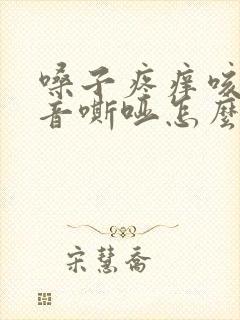 嗓子疼痒咳
音嘶哑怎麼
宋慧喬